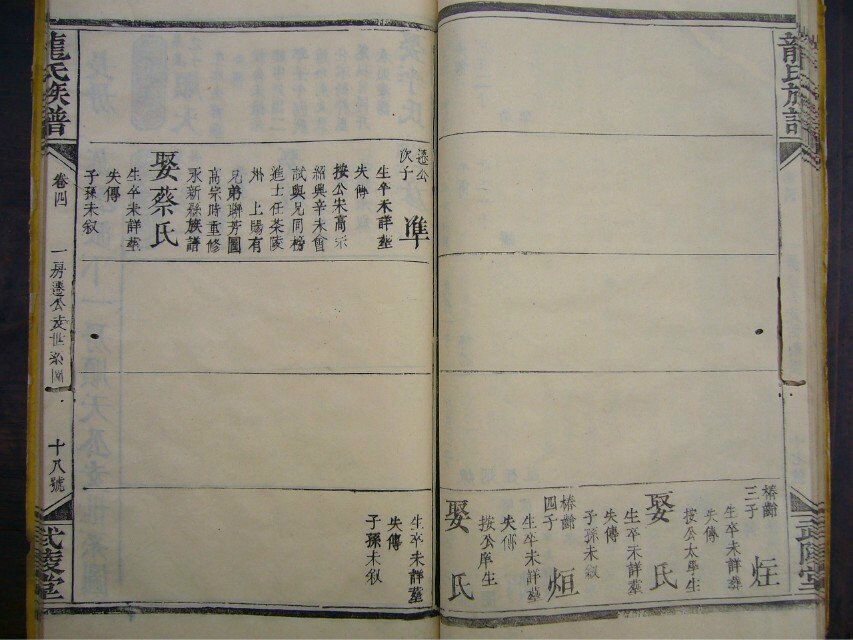 龍氏族譜
武陵堂
椿齡
三子
炷
生卒未詳塟
失傳
按公太學生
娶氏
生卒未詳塟
失傳
子孫未叙
椿齡
四子
烜
生卒未詳塟
失傳
按公庠生
娶氏
次子
準
生卒未詳塟
失傳
按公宋高宗
紹興辛未會
試與兄同榜
進士任茶陵
州上陽有
兄弟聯芳圖
高宗時重修
永新縣族譜
娶蔡氏
生卒未詳塟
失傳
子孫未叙
生卒未詳塟
失傳
子孫未叙
龍氏族譜
卷四
十八號
武陵堂